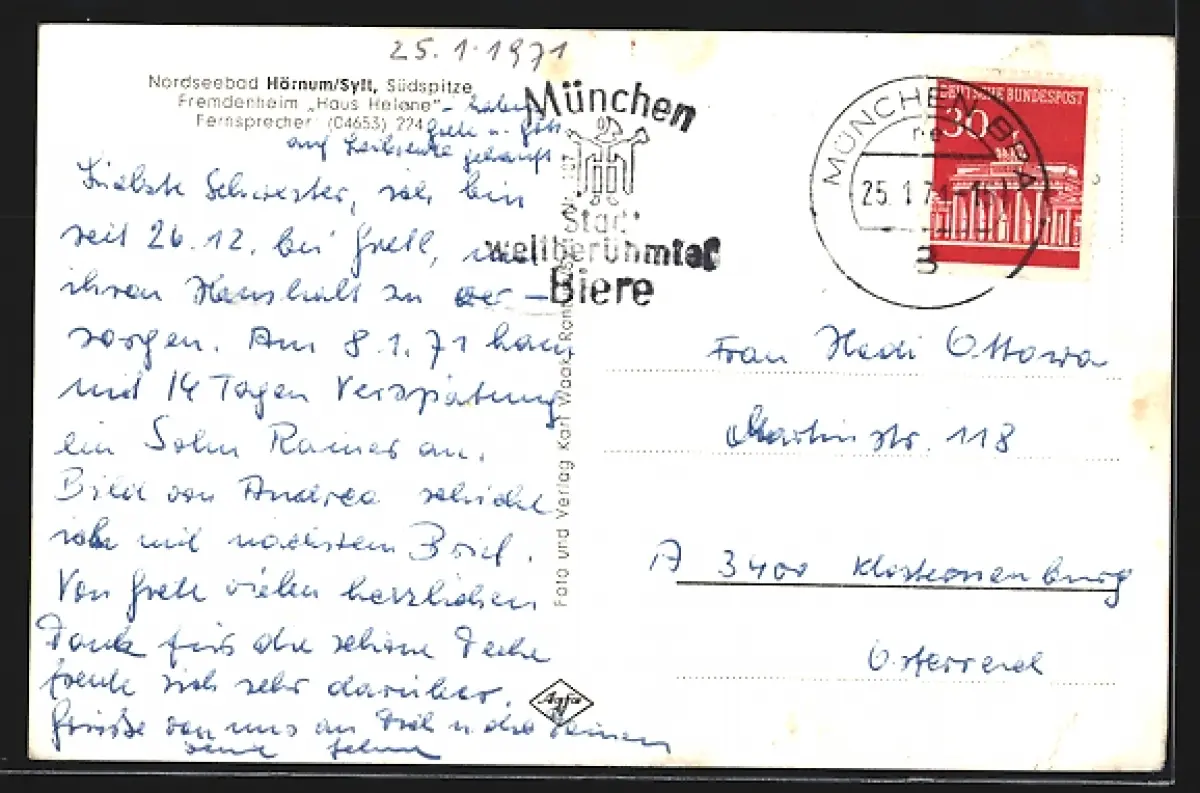 25.1.1971
Nordseebad Hörnum/Sylt, Südspitze
Fremdenheim „Haus Helene"
Fernsprecher (04653) 224
haben
Grete u.
auf gekauft
Liebste Schwester, ich bin
seit 26.12. bei Gretl, um
ihren Haushalt zu ver-
sorgen. Am 8.1.71 kam
mit 14 Tagen Verspätung
ein Sohn Rainer an.
Bild von Andrea schicke
ich mit nächstem Brief.
Von Grete vielen herzlichen
Dank für die schöne Decke
freute sich sehr darüber.
Grüße von uns an Dich u. die Deinen
München
Stadt
weltberühmter
Biere
MÜNCHEN BPA
25.1.71
3
DEUTSCHE BUNDESPOST
30
Foto und Verlag Karl Waak
Agfa
Frau Hedi Ottowa
Martinstr. 118
A 3400 Klosterneuburg
Österreich